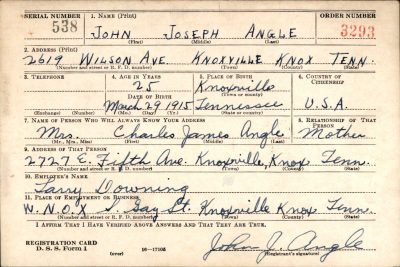 SERIAL NUMBER 1. NAME (Print) ORDER NUMBER
538 JOHN JOSEPH ANGLE 3293
(First) (Middle) (Last)
2. ADDRESS (Print)
2619 WILSON AVE. KNOXVILLE KNOX TENN.
(Number and street or R. F. D. number) (Town) (County) (State)
3. TELEPHONE 4. AGE IN YEARS 5. PLACE OF BIRTH 6. COUNTRY OF CITIZENSHIP
25 Knoxville
DATE OF BIRTH (Town or county)
March 29 1915 Tennessee U.S.A.
(Exchange) (Number) (Mo.) (Day) (Yr.) (State or country)
7. NAME OF PERSON WHO WILL ALWAYS KNOW YOUR ADDRESS 8. RELATIONSHIP OF THAT PERSON
Mrs. Charles James Angle Mother
(Mr., Mrs., Miss) (First) (Middle) (Last)
9. ADDRESS OF THAT PERSON
2727 E. Fifth Ave. Knoxville, Knox Tenn.
(Number and street or R. F. D. number) (Town) (County) (State)
10. EMPLOYER'S NAME
Larry Downing
11. PLACE OF EMPLOYMENT OR BUSINESS
W.N.O.X S. Gay St. Knoxville Knox Tenn.
(Number and street or R. F. D. number) (Town) (County) (State)
I AFFIRM THAT I HAVE VERIFIED ABOVE ANSWERS AND THAT THEY ARE TRUE.
REGISTRATION CARD
D. S. S. Form 1 (over) 16—17105 John J. Angle
(Registrant's signature)